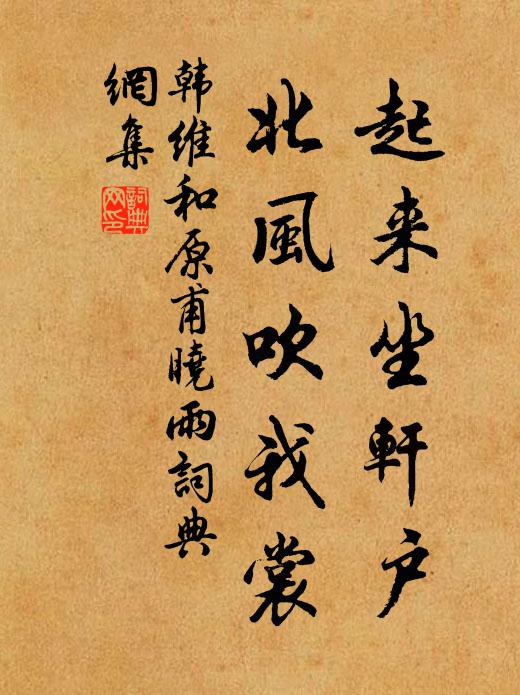 起来坐軒户
北風吹我裳
韩维和原甫曉雨詞典
網集
詞典
网印